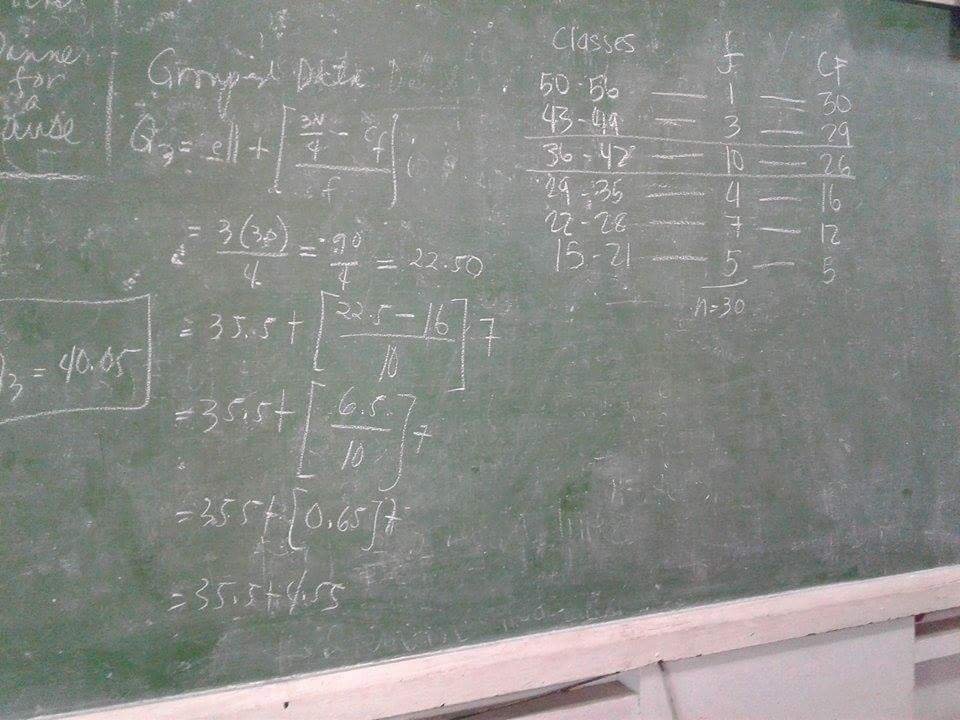 for
a
Grouped Data
Q3 = ell + [ 3N/4 - cf / f ] i
= 3(30)/4 = 90/4 = 22.50
= 35.5 + [ 22.5 - 16 / 10 ] 7
= 35.5 + [ 6.5 / 10 ] 7
= 35.5 + [0.65] 7
= 35.5 + 4.55
Q3 = 40.05
Classes f CF
50-56 — 1 — 30
43-49 — 3 — 29
36-42 — 10 — 26
29-35 — 4 — 16
22-28 — 7 — 12
15-21 — 5 — 5
n=30